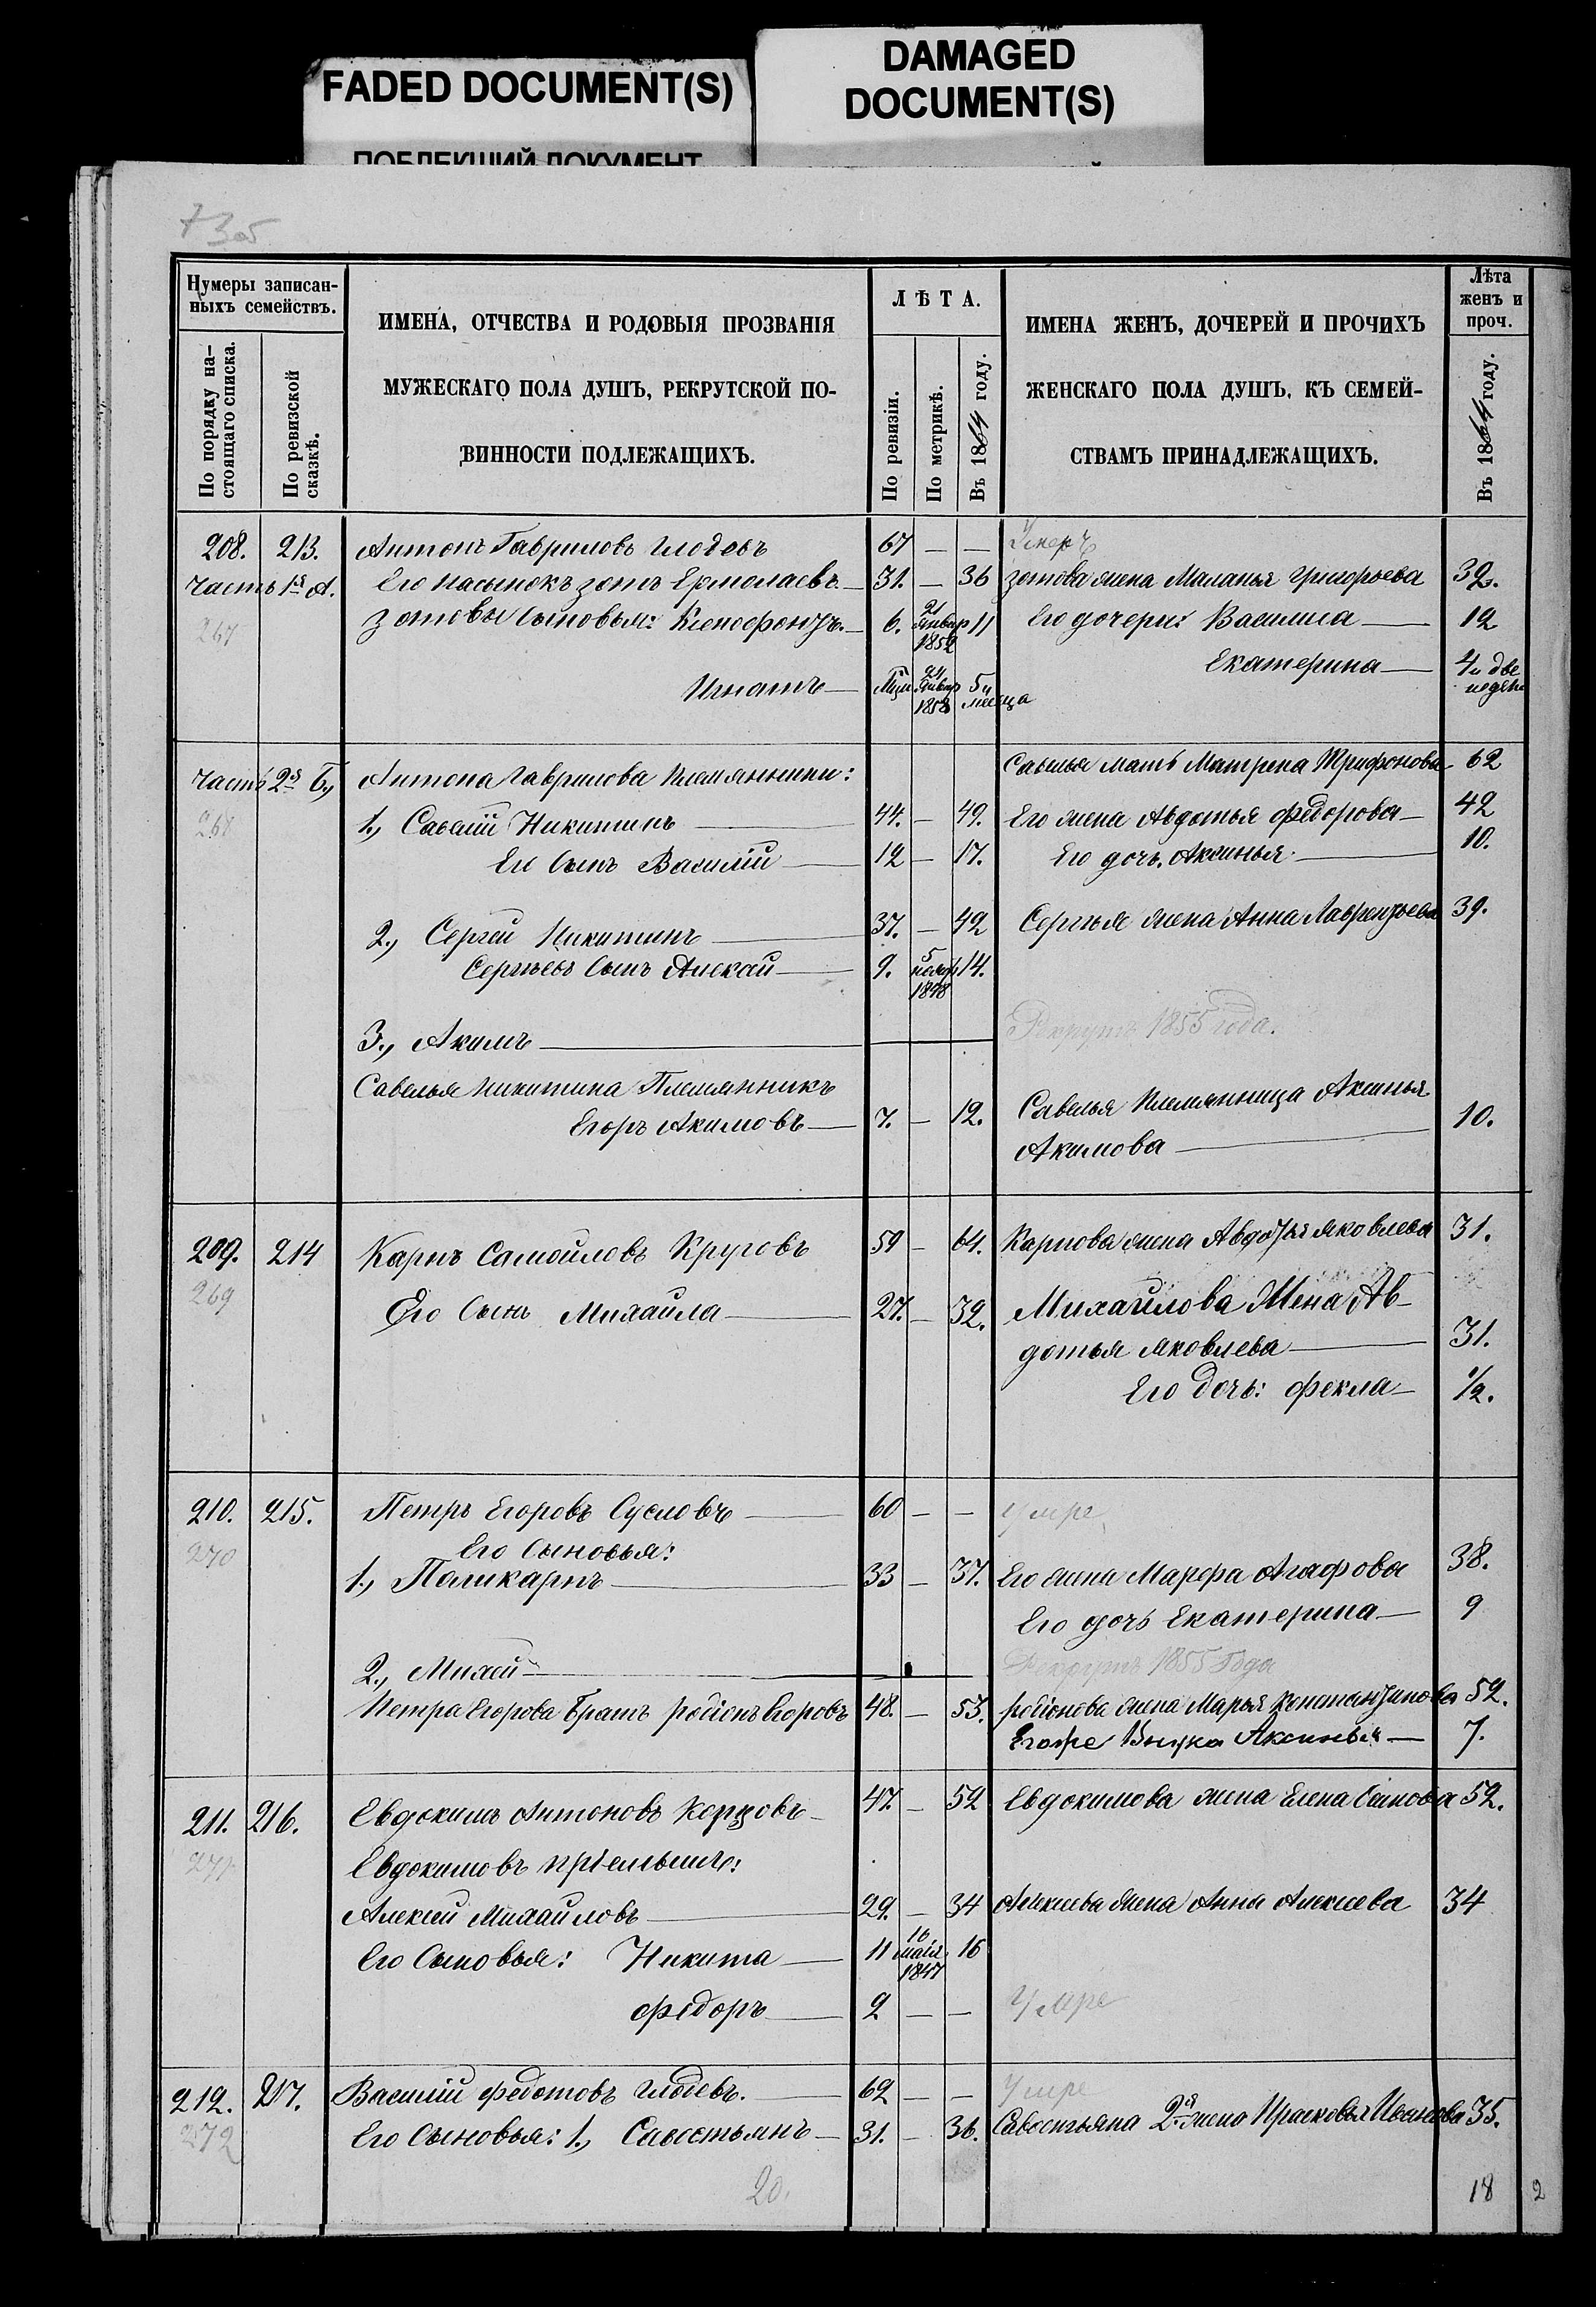 FADED DOCUMENT(S)
DAMAGED
DOCUMENT(S)
ПОБЛЕКШИЙ ДОКУМЕНТ
7305
Нумеры записан-
ныхъ семействъ.
По порядку на-
стоящаго списка.
По ревизской
сказкѣ.
ИМЕНА, ОТЧЕСТВА И РОДОВЫЯ ПРОЗВАНІЯ
МУЖЕСКАГО ПОЛА ДУШЪ, РЕКРУТСКОЙ ПО-
ВИННОСТИ ПОДЛЕЖАЩИХЪ.
ЛѢТА.
По ревизіи.
По метрикѣ.
Въ 1864 году.
ИМЕНА ЖЕНЪ, ДОЧЕРЕЙ И ПРОЧИХЪ
ЖЕНСКАГО ПОЛА ДУШЪ, КЪ СЕМЕЙ-
СТВАМЪ ПРИНАДЛЕЖАЩИХЪ.
Лѣта
женъ и
проч.
Въ 1864 году.
208. 213. Антонъ Гавриловъ Глодевъ 67 — — Умеръ
Часть 1я А. Его пасынокъ Зотъ Ермолаевъ — 31. — 36 Зотова жена Маланья Григорьева 39.
267 Зотовы сыновья: Ксенофонтъ — 6. 21 Январ 1852 11 Его дочери: Василиса — 12
Екатерина — 4 и две недели
Игнатъ — 24 Январ 1858 5 и месеца
Часть 2я Б., Антона Гаврилова племянники: Савелья мать Матрена Трифонова 62
268 1., Савелій Никитинъ — 44. — 49. Его жена Авдотья Федорова — 42
Его сынъ Василій — 12 — 17. Его дочь Аксинья — 10.
2., Сергей Никитинъ — 37. — 42 Сергѣя жена Анна Лаврентьева 39.
Сергѣевъ сынъ Алексѣй — 9. 5 ноябр 1848 14.
3., Акимъ — Рекрутъ 1855 года.
Савелья Никитина Племянникъ
Егоръ Акимовъ — 7. — 12. Савелья племянница Аксинья
Акимова — 10.
209. 214 Карпъ Самойловъ Круговъ 59 — 64. Карпова жена Авдотья Яковлева 31.
269
Его сынъ Михайла — 27. — 32. Михайлова Жена Ав-
дотья Яковлева — 31.
Его дочь: Фекла — 1/2.
210. 215. Петръ Егоровъ Сусловъ — 60 — — Умре
270 Его Сыновья:
1., Поликарпъ — 33 — 37. Его жена Марфа Агафова 38.
Его дочь Екатерина — 9
2., Михей — Рекрутъ 1855 Года
Петра Егорова братъ Родіонъ Егоровъ 48. — 53. Родіонова жена Марья Константинова 52.
Егоже Внука Аксинья — 7.
211. 216. Евдокимъ Антоновъ — 47. — 52 Евдокимова жена Елена 52.
271 Евдокимовъ пріемышъ:
Алексѣй Михайловъ — 29. — 34 Алексѣева жена Анна Алексѣева 34
Его Сыновья: Никита — 11 16 маія 1847 16
Федоръ — 2 — — Умре
212. 217. Василій Федотовъ Глодевъ. — 62 — — Умре
272 Его Сыновья: 1., Савостьянъ — 31. — 36. Савостьяна 2я жена Прасковья Иванова 35.
20.
18 2